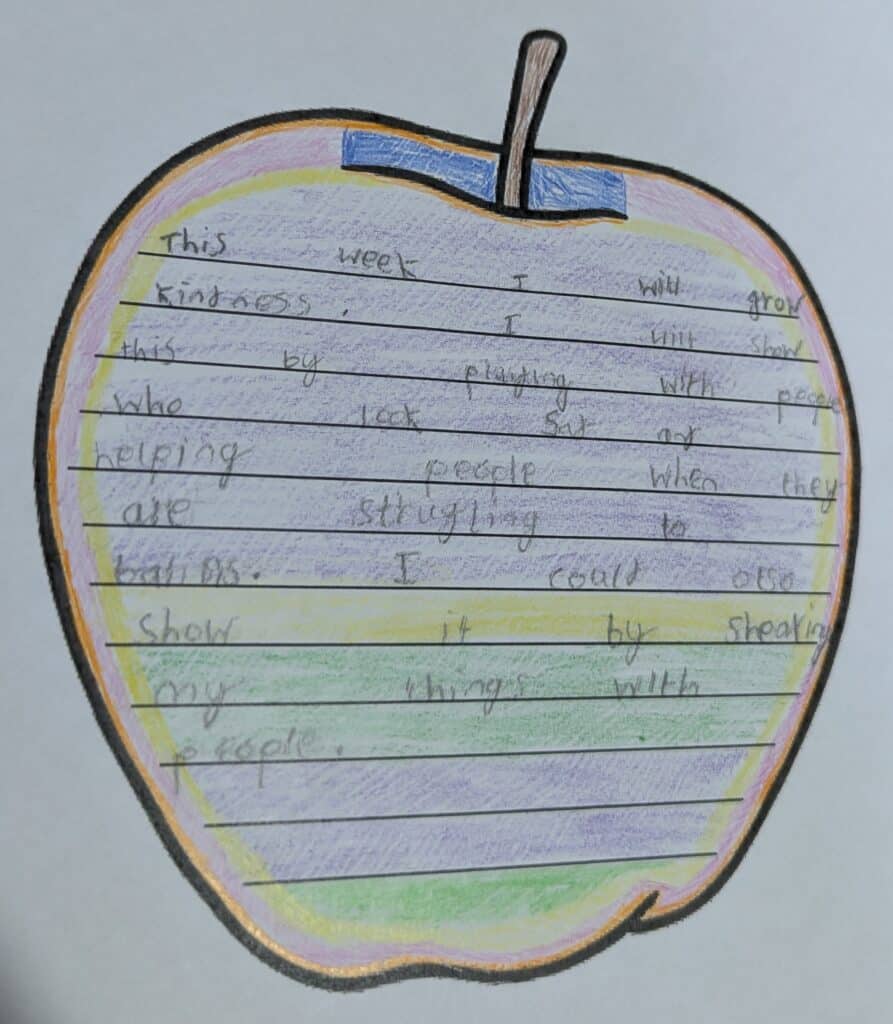 This week I will grow
kindness. I will show
this by playing with people
who look Sat or
helping people when they
are struggling to
I could olso
Show it by Shearing
my things with
people.